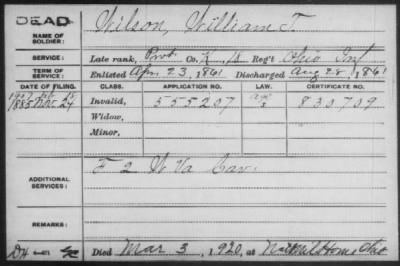 DEAD
NAME OF SOLDIER: Wilson, William T.
SERVICE: Late rank, Prvt Co. K, 18 Reg't Ohio Inf
TERM OF SERVICE: Enlisted Apr. 23, 1861 Discharged Aug 28, 1861
DATE OF FILING. CLASS. APPLICATION NO. LAW. CERTIFICATE NO.
1885 Nov. 24 Invalid, 555207 830709
Widow,
Minor,
ADDITIONAL SERVICES: F 2 W Va Cav.
REMARKS:
Died Mar 3, 1920, at Nat Mil Home Ohio